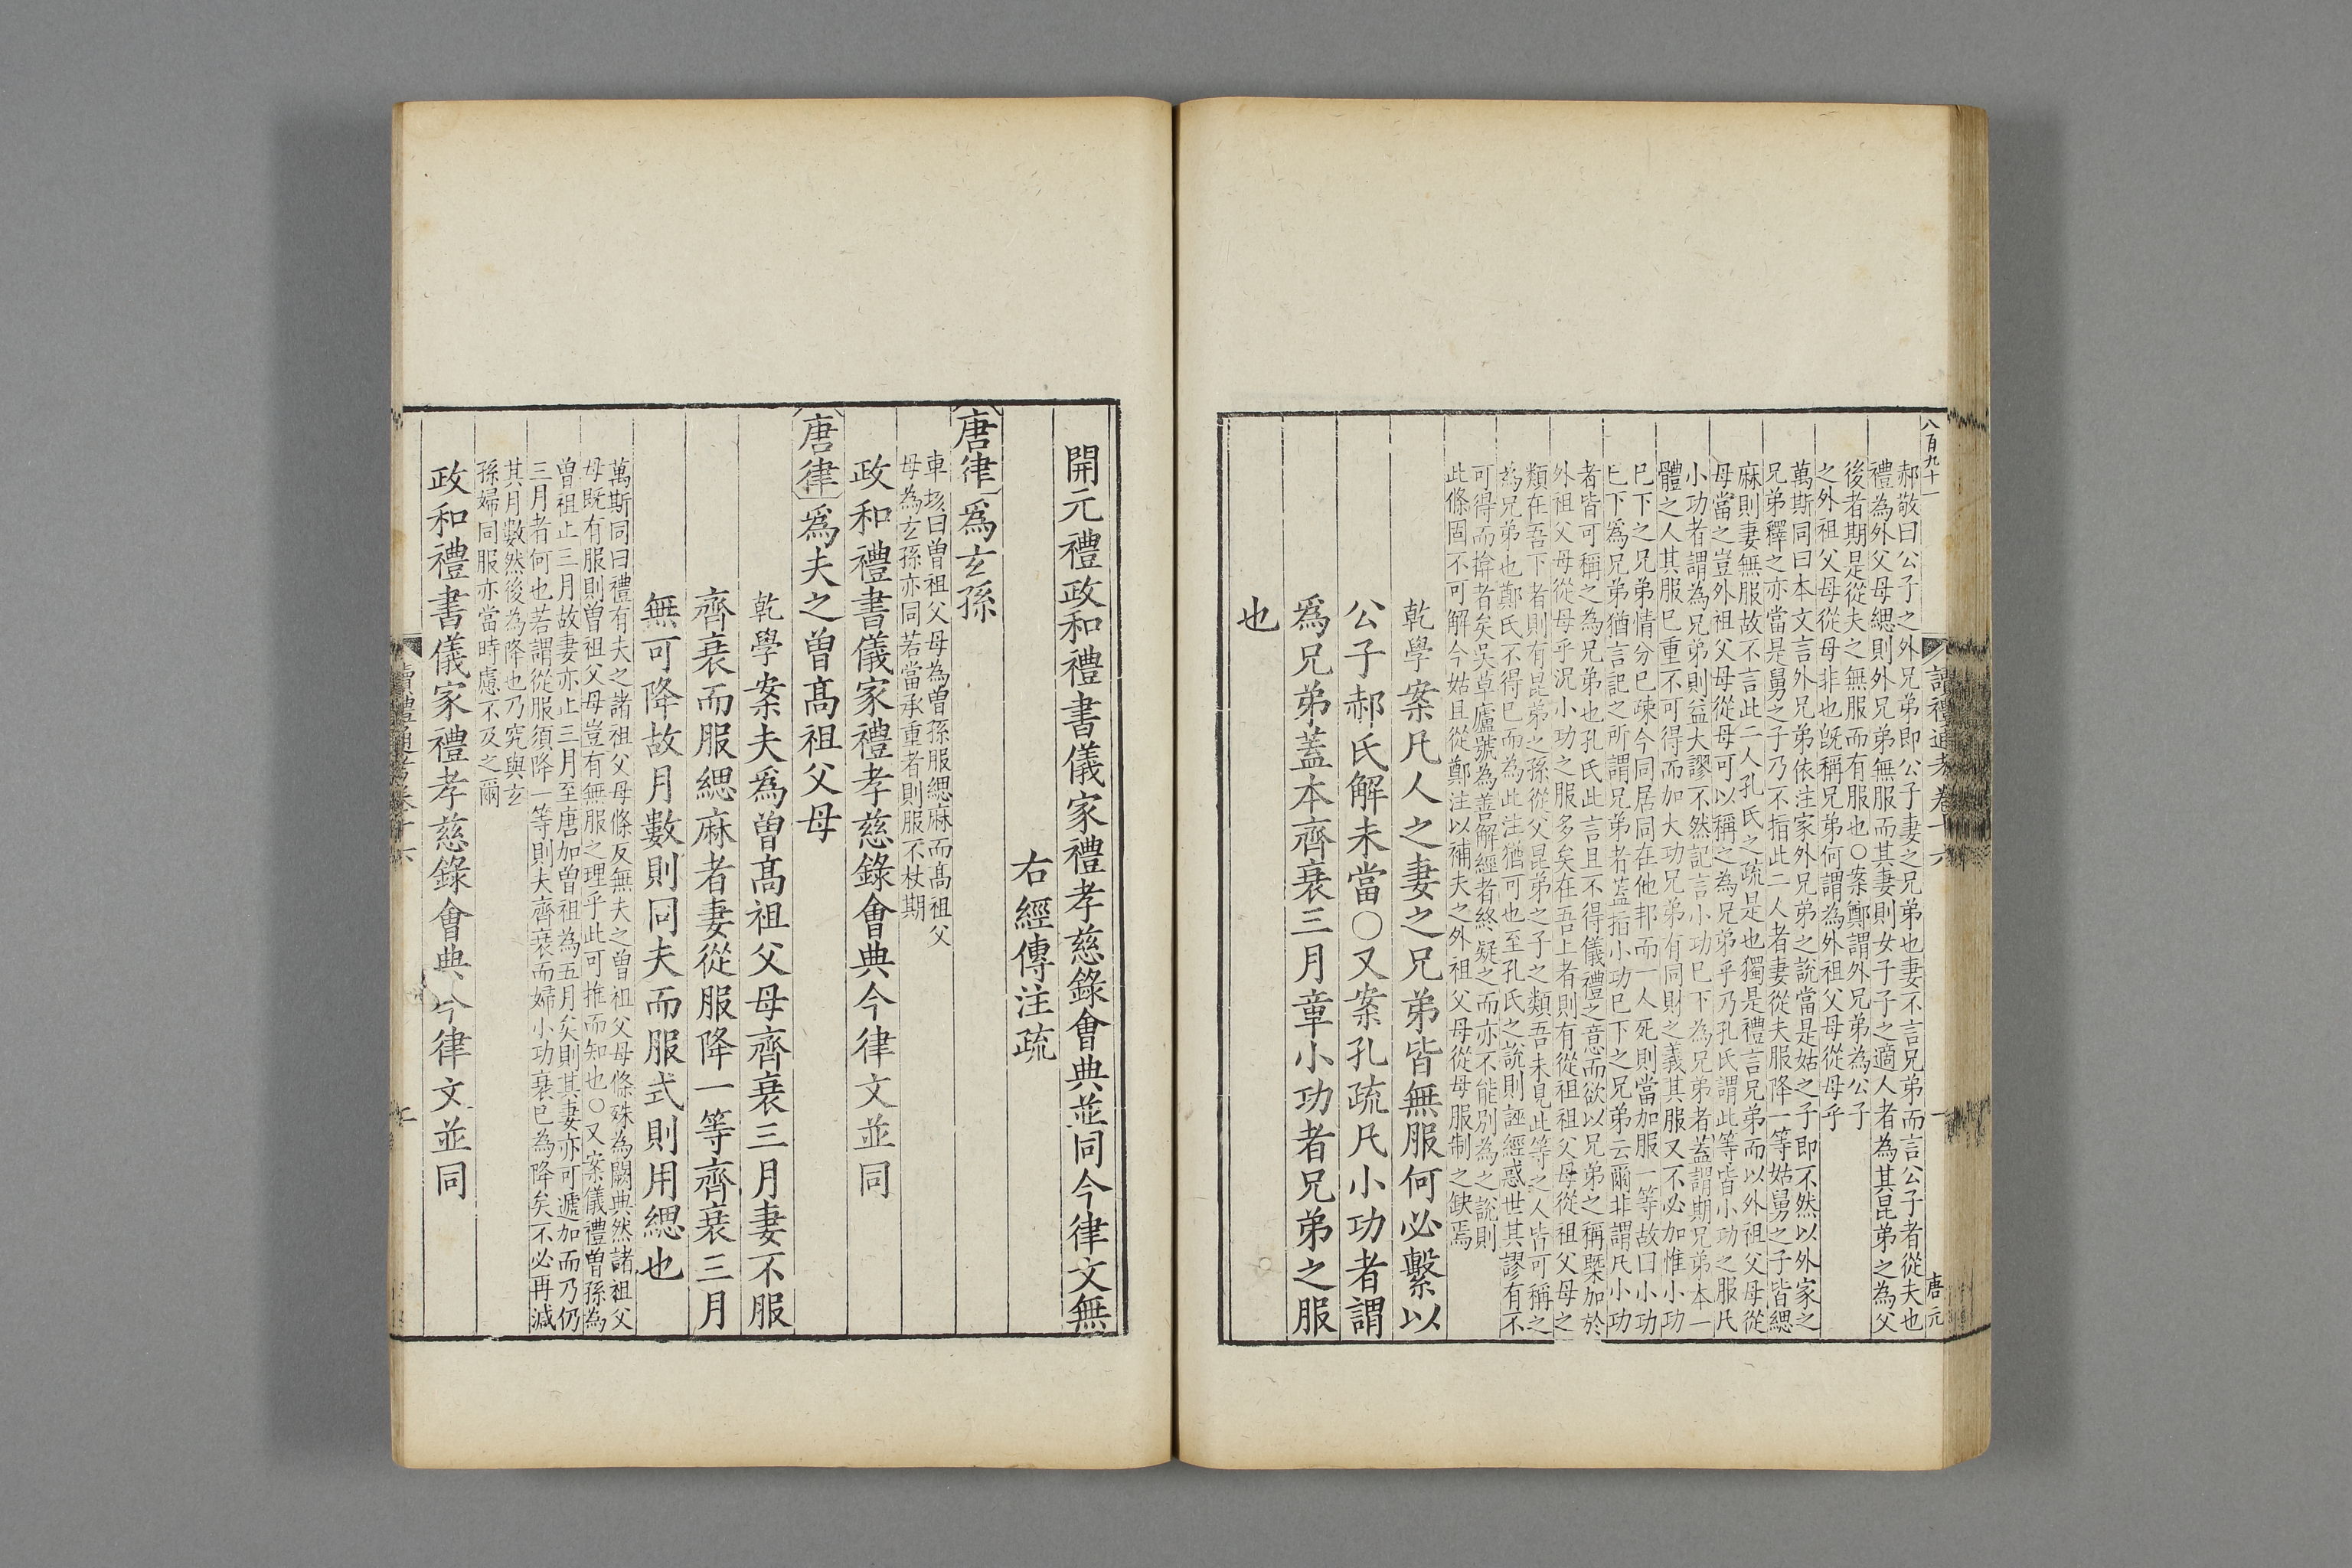 八百九十一
讀禮通考卷十六
一
唐元
郝敬曰公子之外兄弟即公子妻之兄弟也妻不言兄弟而言公子者從夫也
禮為外父母緦則外兄弟無服而其妻則女子子之適人者為其昆弟之為父
後者期是從夫之無服而有服也○案鄭謂外兄弟為公子
之外祖父母從母非也旣稱兄弟何謂為外祖父母從母乎
萬斯同曰本文言外兄弟依注家外兄弟之說當是姑之子即不然以外家之
兄弟釋之亦當是舅之子乃不指此二人者妻從夫服降一等姑舅之子皆緦
麻則妻無服故不言此二人孔氏之疏是也獨是禮言兄弟而以外祖父母從
母當之豈外祖父母從母可以稱之為兄弟乎乃孔氏謂此等皆小功之服凡
小功者謂為兄弟則益大謬不然記言小功巳下為兄弟者蓋謂期兄弟本一
體之人其服巳重不可得而加大功兄弟有同財之義其服又不必加惟小功
巳下之兄弟情分巳疎今同居同在他邦而一人死則當加服一等故曰小功
巳下爲兄弟猶言記之所謂兄弟者蓋指小功巳下之兄弟云爾非謂凡小功
者皆可稱之為兄弟也孔氏此言且不得儀禮之意而欲以兄弟之稱槩加於
外祖父母從母乎況小功之服多矣在吾上者則有從祖祖父母從祖父母之
類在吾下者則有昆弟之孫從父昆弟之子之類吾未見此等之人皆可稱之
為兄弟也鄭氏不得巳而為此注猶可也至孔氏之說則誣經惑世其謬有不
可得而揜者矣吳草廬號為善解經者終疑之而亦不能別為之說則
此條固不可解今姑且從鄭注以補夫之外祖父母從母服制之缺焉
乾學案凡人之妻之兄弟皆無服何必繫以
公子郝氏解未當○又案孔疏凡小功者謂
爲兄弟蓋本齊衰三月章小功者兄弟之服
也
開元禮政和禮書儀家禮孝慈錄會典並同今律文無
右經傳注疏
唐律爲玄孫
車垓曰曾祖父母為曾孫服緦麻而髙祖父
母為玄孫亦同若當承重者則服不杖期
政和禮書儀家禮孝慈錄會典今律文並同
唐律爲夫之曾髙祖父母
乾學案夫爲曾髙祖父母齊衰三月妻不服
齊衰而服緦麻者妻從服降一等齊衰三月
無可降故月數則同夫而服式則用緦也
萬斯同曰禮有夫之諸祖父母條反無夫之曾祖父母條殊為闕典然諸祖父
母既有服則曾祖父母豈有無服之理乎此可推而知也○又案儀禮曾孫為
曾祖止三月故妻亦止三月至唐加曾祖為五月矣則其妻亦可遞加而乃仍
三月者何也若謂從服須降一等則夫齊衰而婦小功衰已為降矣不必再減
其月數然後為降也乃究與玄
孫婦同服亦當時慮不及之爾
政和禮書儀家禮孝慈錄會典今律文並同
讀禮通考卷十六